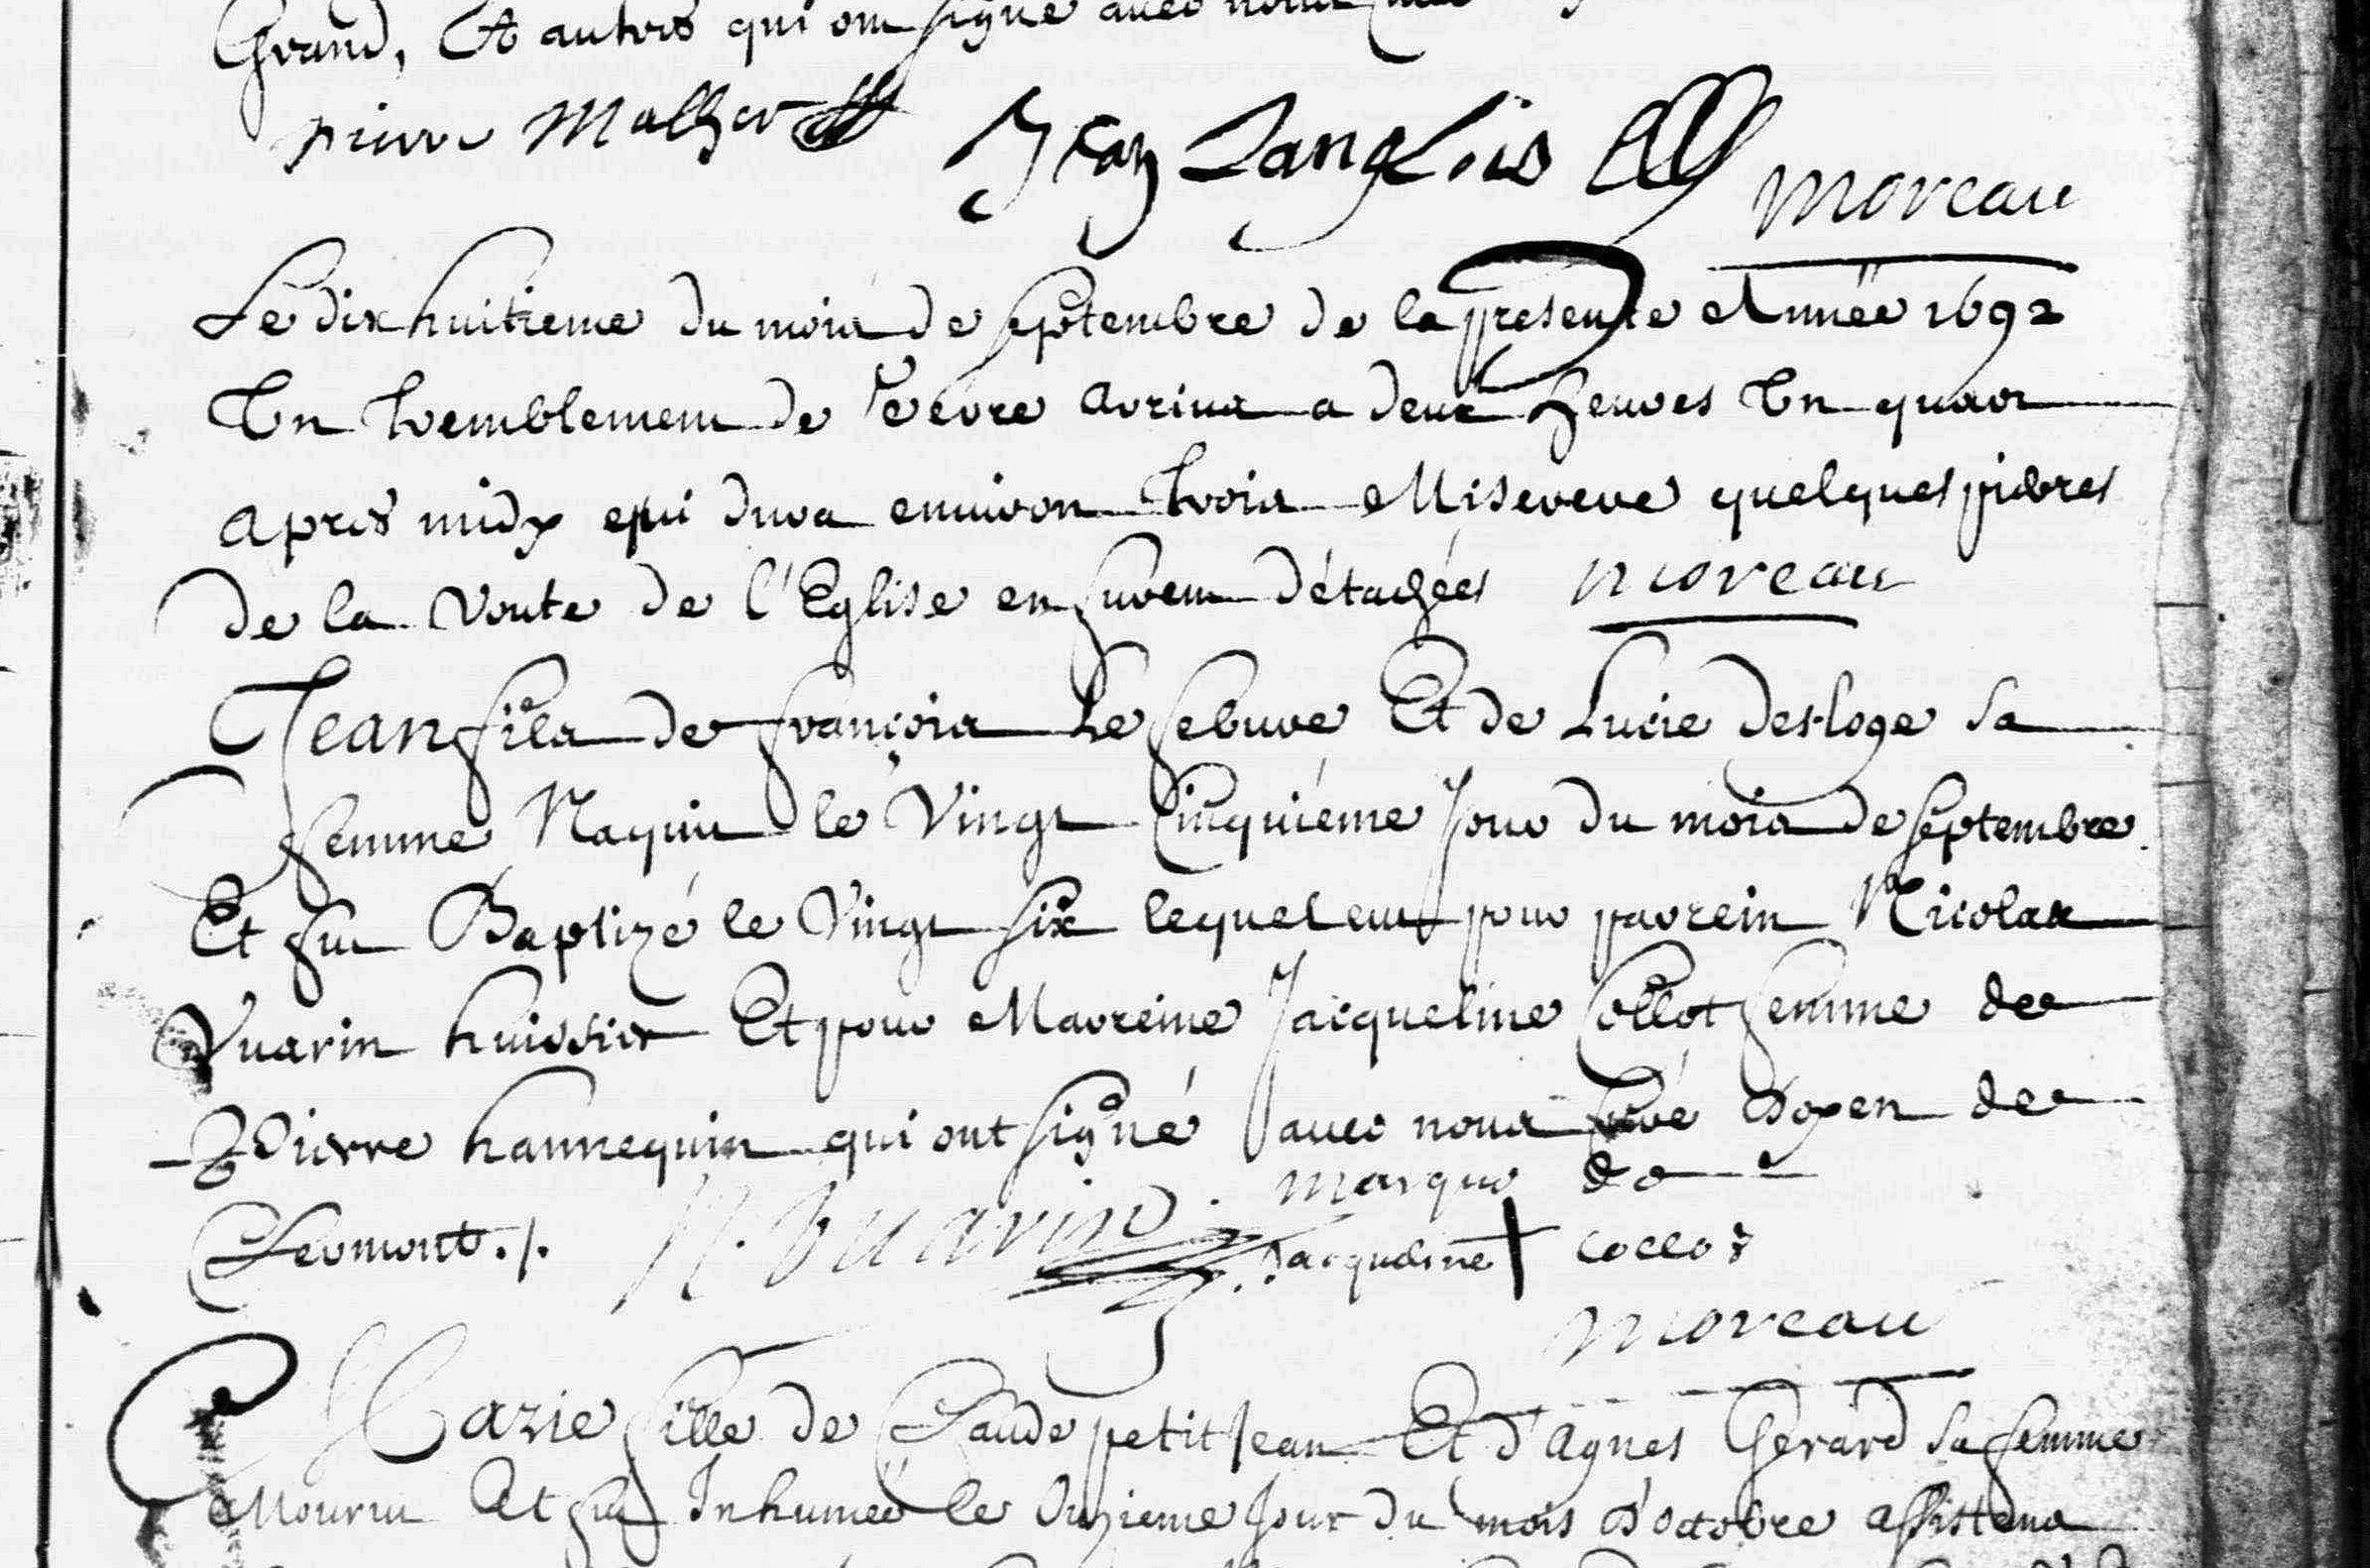 Grand, Et autres qui ont signé avec nous
pierre Malher Jean Langlois moreau
Le dix huitieme du mois de septembre de la presente Année 1692
Un tremblement de terre arriva a deux heures Un quart
apres midy qui dura environ trois Miserere quelques pierres
de la voute de l'Eglise en furent détachées moreau
Jean fils de françois Le febure Et de Lucie desloge sa
femme Naquit le Vingt Cinquiéme Jour du mois de septembre
Et fut Baptizé le Vingt six lequel eut pour parrein Nicolas
Vuarin huissier Et pour Marreine Jacqueline Collot femme de
Pierre hannequin qui ont signé avec nous Curé Doyen de
marque de
Leomont ./. N. Vuarin Jacqueline + collot
moreau
Marie fille de Claude petit Jean Et d'Agnes Gerard sa femme
Mourut Et fut Inhumeé le Onzieme Jour du mois d'octobre assistens